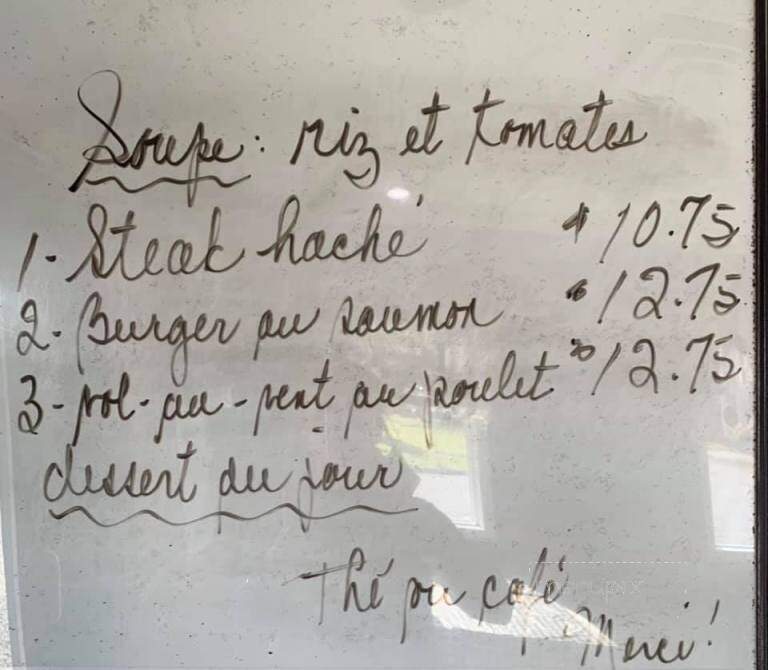 Soupe: riz et tomates
1- Steak haché $10.75
2- Burger au saumon $12.75
3- vol-au-vent au poulet $12.75
dessert du jour
Thé ou café
Merci!